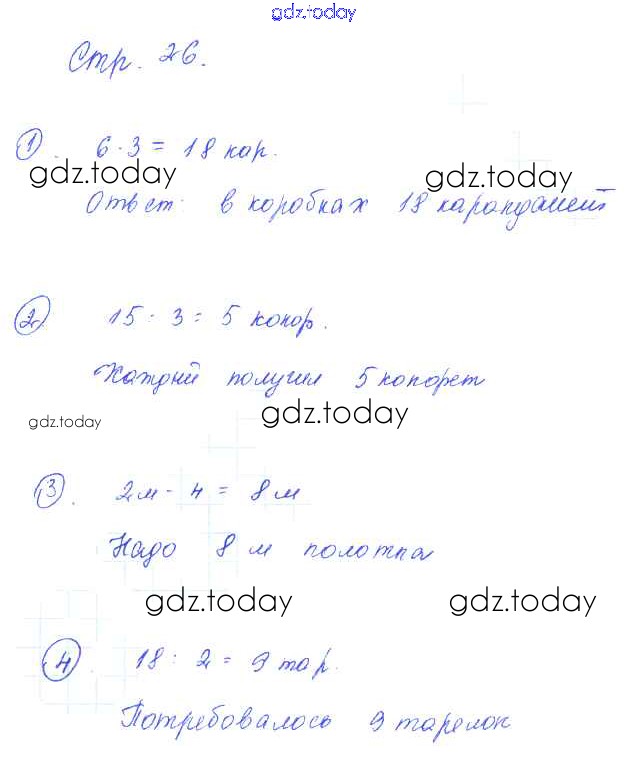 gdz.today
Стр. 26.
1. 6 · 3 = 18 кар.
gdz.today gdz.today
Ответ: в коробках 18 карандашей
2. 15 : 3 = 5 конф.
Каждый получил 5 конфет
gdz.today gdz.today
3. 2м · 4 = 8 м
Надо 8 м полотна
gdz.today gdz.today
4. 18 : 2 = 9 тар.
Потребовалось 9 тарелок